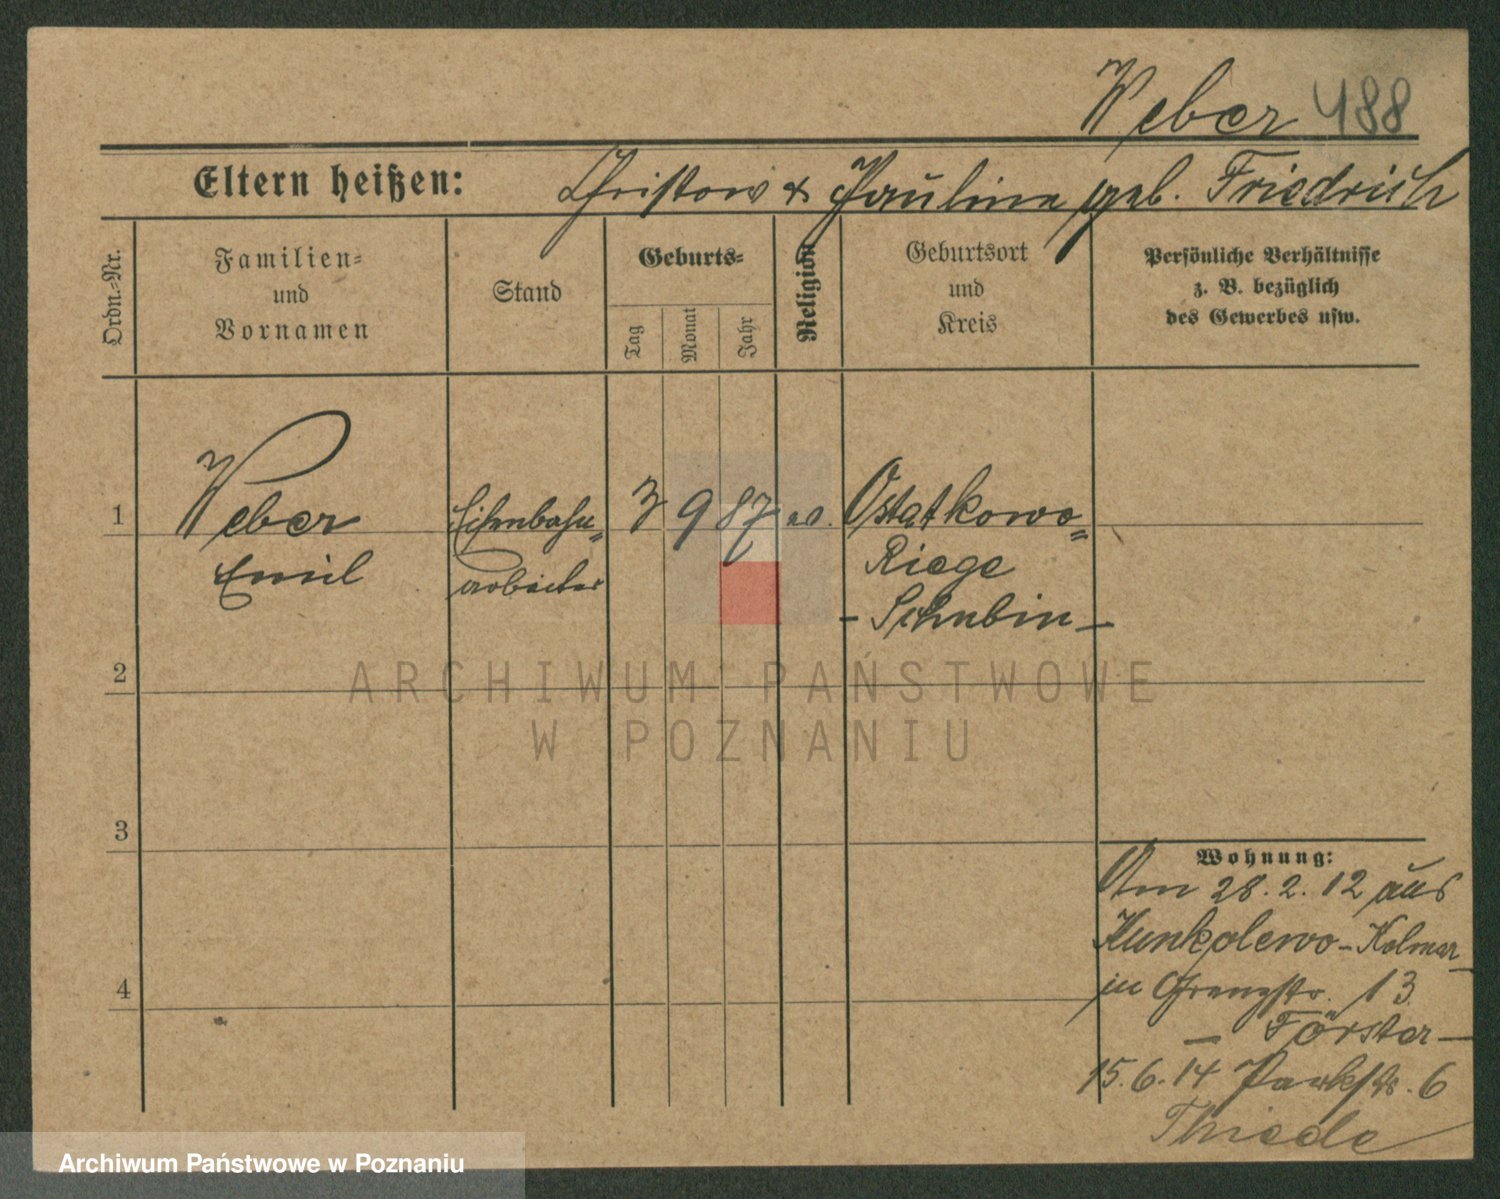 Weber 488
Eltern heißen: Christow & Pauline geb. Friedrich
Ordn.-Nr.
Familien-
und
Vornamen
Stand
Geburts-
Tag
Monat
Jahr
Religion
Geburtsort
und
Kreis
Persönliche Verhältnisse
z. B. bezüglich
des Gewerbes usw.
1 Weber Eisenbahn= 3 9 87 ev. Ostatkowo=
Emil arbeiter Riege
- Schubin -
2
3
4
Wohnung:
Am 28.2.12 aus
Kunkolewo - Kolmar
in Grenzstr. 13
- Förster -
15.6.14 Parkstr. 6
Thiede
ARCHIWUM PAŃSTWOWE
W POZNANIU
Archiwum Państwowe w Poznaniu